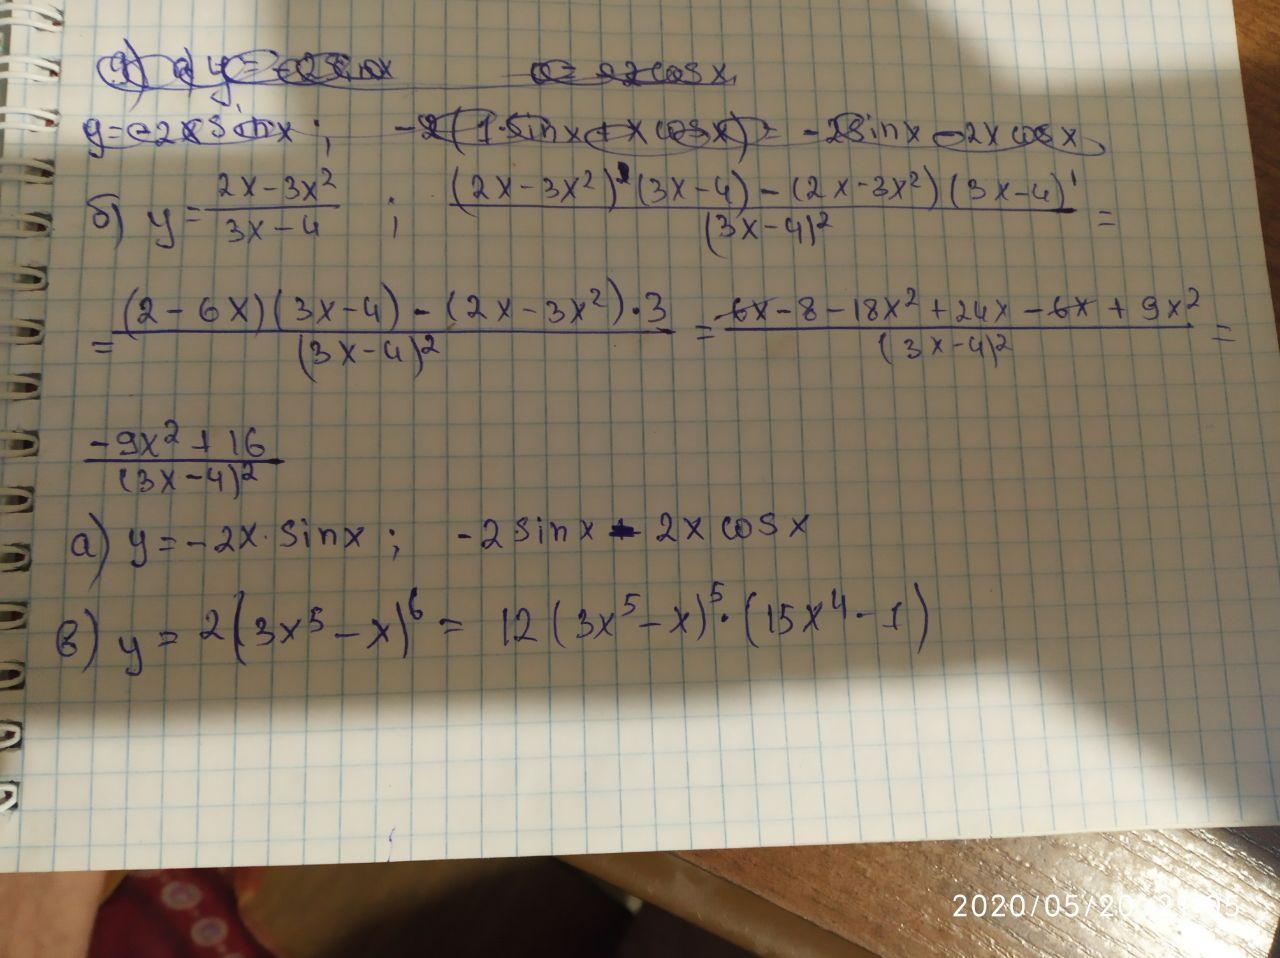 y = -2x sin x ; -2(1·sinx + x cosx) = -2sinx - 2x cosx
б) y = (2x-3x²)/(3x-4) ; ((2x-3x²)'(3x-4) - (2x-3x²)(3x-4)')/(3x-4)² =
= ((2-6x)(3x-4) - (2x-3x²)·3)/(3x-4)² = (6x-8-18x²+24x-6x+9x²)/(3x-4)² =
(-9x²+16)/(3x-4)²
а) y = -2x·sinx ; -2sinx - 2x cosx
в) y = 2(3x⁵-x)⁶ = 12(3x⁵-x)⁵·(15x⁴-1)
2020/05/20 21:05